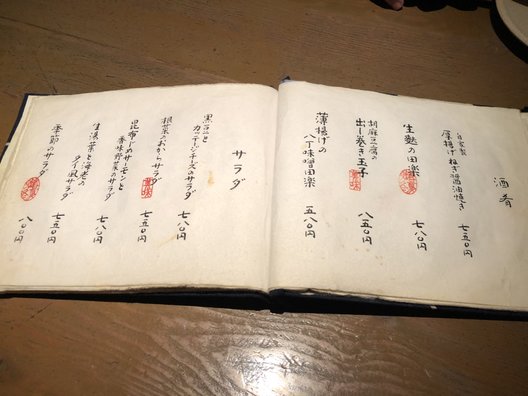 酒肴
自家製
厚揚げねぎ醤油焼き
七五〇円
生麩の田楽
七八〇円
胡麻豆腐の
出し巻き玉子
八五〇円
薄揚げの
八丁味噌田楽
五八〇円
サラダ
黒豆と
カッテージチーズのサラダ
七八〇円
根菜のおからサラダ
七五〇円
昆布〆めサーモンと
香味野菜のサラダ
七八〇円
生湯葉と海老の
タイ風サラダ
七五〇円
季節のサラダ
八〇〇円